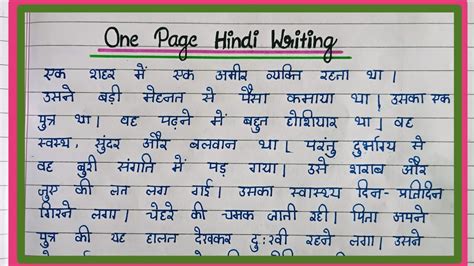 One Page Hindi Writing
एक शहर में एक अमीर व्यक्ति रहता था |
उसने बड़ी मेहनत से पैसा कमाया था | उसका एक
पुत्र था | वह पढ़ने में बहुत होशियार था | वह
स्वस्थ, सुंदर और बलवान था | परंतु दुर्भाग्य से
वह बुरी संगति में पड़ गया | उसे शराब और
जुए की लत लग गई | उसका स्वास्थ्य दिन-प्रतिदिन
गिरने लगा | चेहरे की चमक जाती रही | पिता अपने
पुत्र की यह हालत देखकर दुःखी रहने लगा | उसने